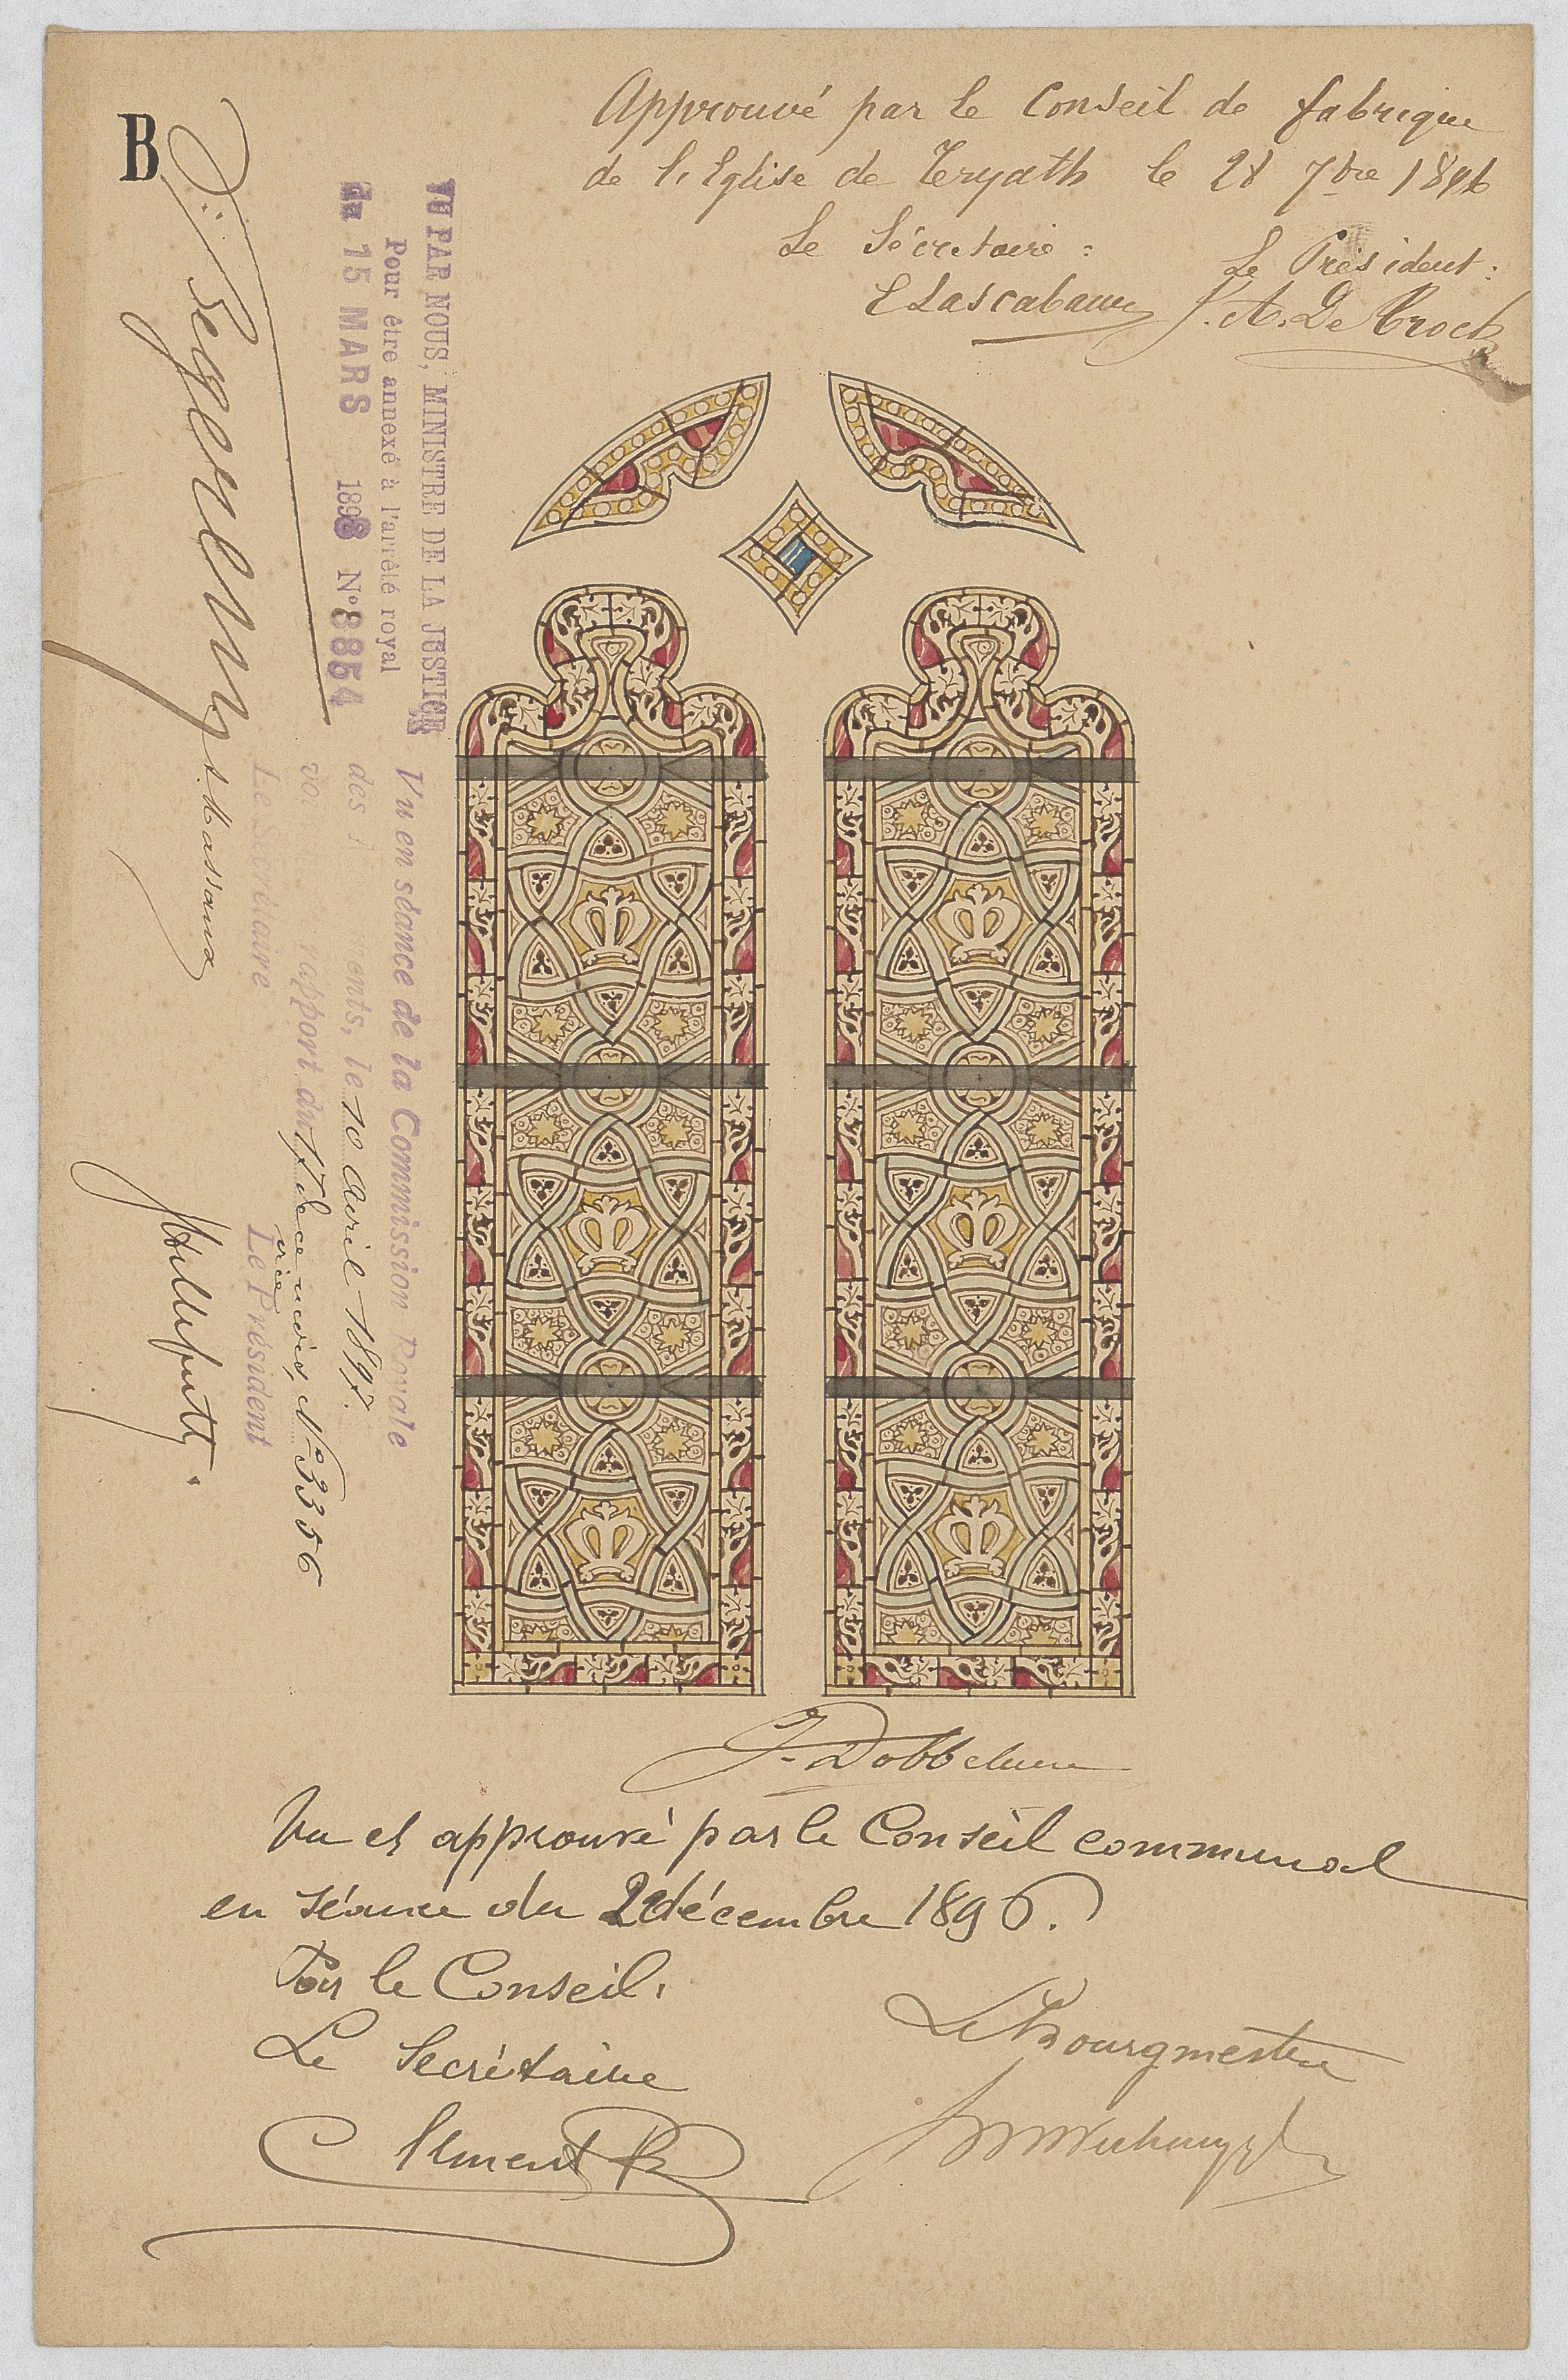 B
Approuvé par le Conseil de fabrique
de l'Eglise de Teryath le 28 7bre 1896
Le Sécretaire :
Le Président :
E Lascabauw
J. A. De Crock
VU PAR NOUS, MINISTRE DE LA JUSTICE
Pour être annexé à l'arrêté royal
du 15 MARS 1898 N° 8854
V. Begerem
Vu en séance de la Commission Royale
des ments, le 10 avril 1897.
voi rapport du 17 de ce mois, N° 3356
Le Secrétaire
vice
Le Président
A. Massaux
J. Helleputte.
J. Dobbelaere
Vu et approuvé par le Conseil communal
en séance du 2 décembre 1896.
Pour le Conseil,
Le Secrétaire
Le Bourgmestre
Clment